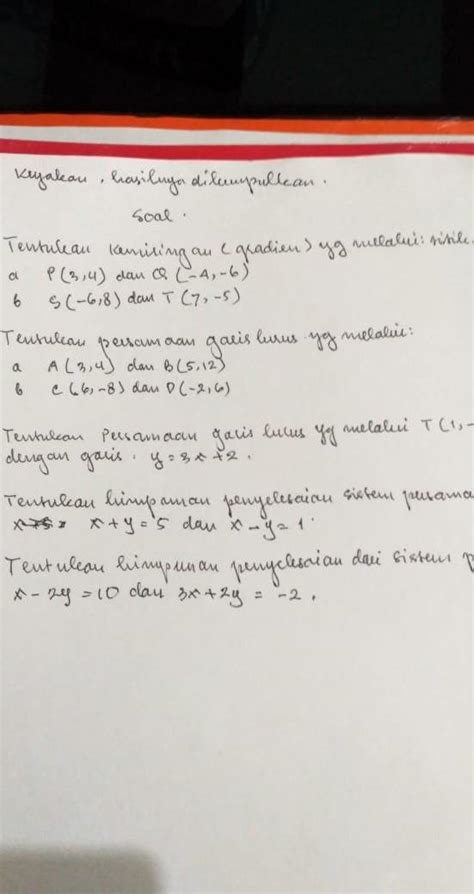 Kerjakan, hasilnya dikumpulkan.
Soal.
Tentukan kemiringan (gradien) yg melalui: titik
a P(3,4) dan Q(-4,-6)
b S(-6,8) dan T(7,-5)
Tentukan persamaan garis lurus yg melalui:
a A(3,4) dan B(5,12)
b C(6,-8) dan D(-2,6)
Tentukan Persamaan garis lurus yg melalui T(1,-
dengan garis. y=3x+2.
Tentukan himpunan penyelesaian sistem persama
x+y=5 dan x-y=1
Tentukan himpunan penyelesaian dari sistem p
x-2y=10 dan 3x+2y=-2.